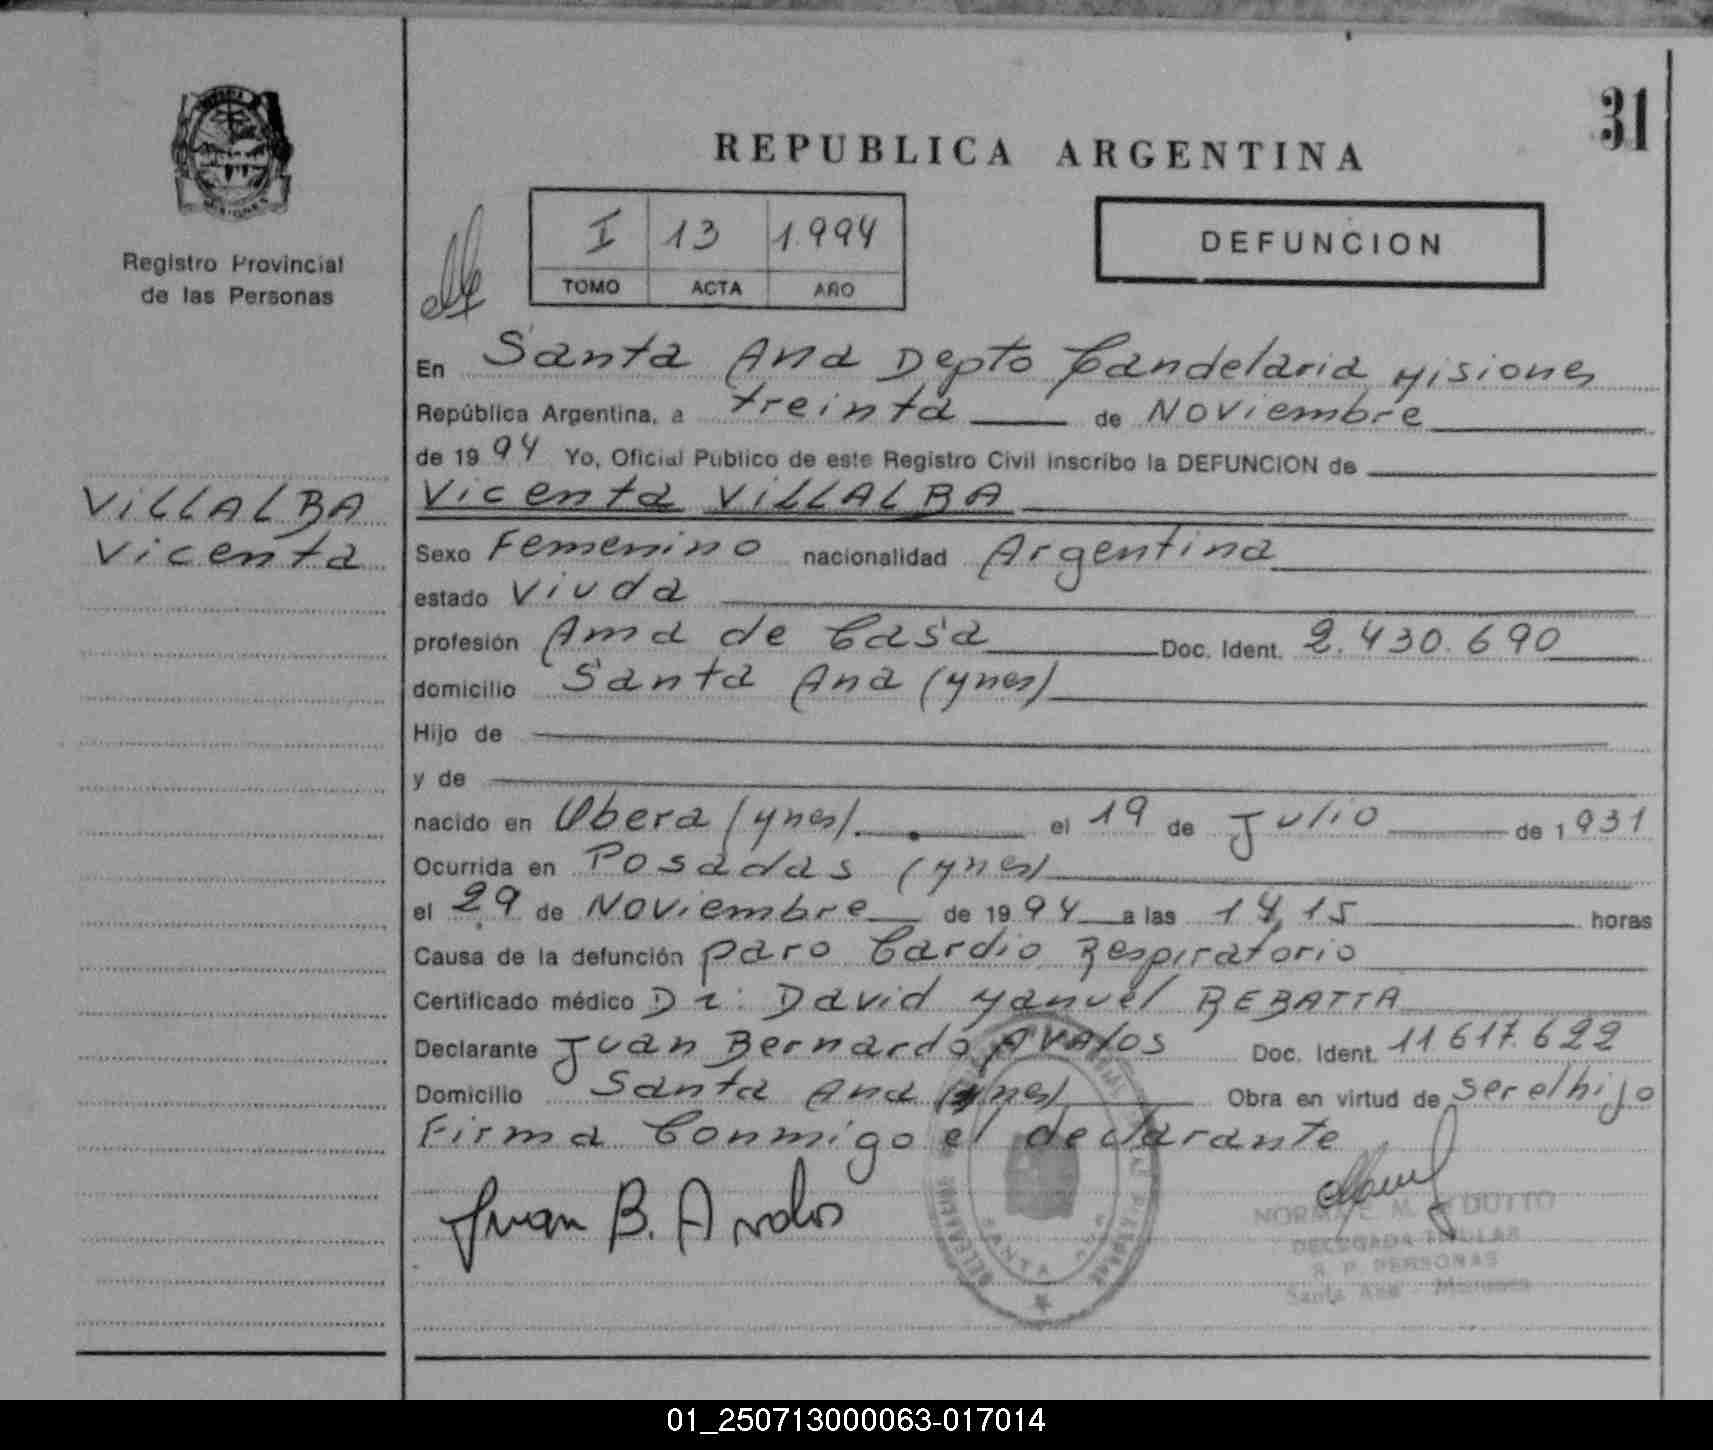 31
REPUBLICA ARGENTINA
Registro Provincial
de las Personas
I 13 1.994
TOMO ACTA AÑO
DEFUNCION
En Santa Ana Depto Candelaria Misiones
República Argentina, a treinta de Noviembre
de 1994 Yo, Oficial Publico de este Registro Civil inscribo la DEFUNCION de
VILLALBA
Vicenta
Vicenta VILLALBA
Sexo Femenino nacionalidad Argentina
estado Viuda
profesión Ama de Casa Doc. Ident. 2.430.690
domicilio Santa Ana (Mnes)
Hijo de
y de
nacido en Obera (Mnes). el 19 de Julio de 1931
Ocurrida en Posadas (Mnes)
el 29 de Noviembre de 1994 a las 14,15 horas
Causa de la defunción paro Cardio Respiratorio
Certificado médico Dr: David Manuel REBATTA
Declarante Juan Bernardo AVALOS Doc. Ident. 11.617.622
Domicilio Santa Ana (Mnes) Obra en virtud de ser el hijo
Firma Conmigo el declarante
Juan B. Avalos
NORMA E. M. DUTTO
DELEGADA TITULAR
R. P. PERSONAS
Santa Ana - Misiones
SANTA ANA
01_250713000063-017014